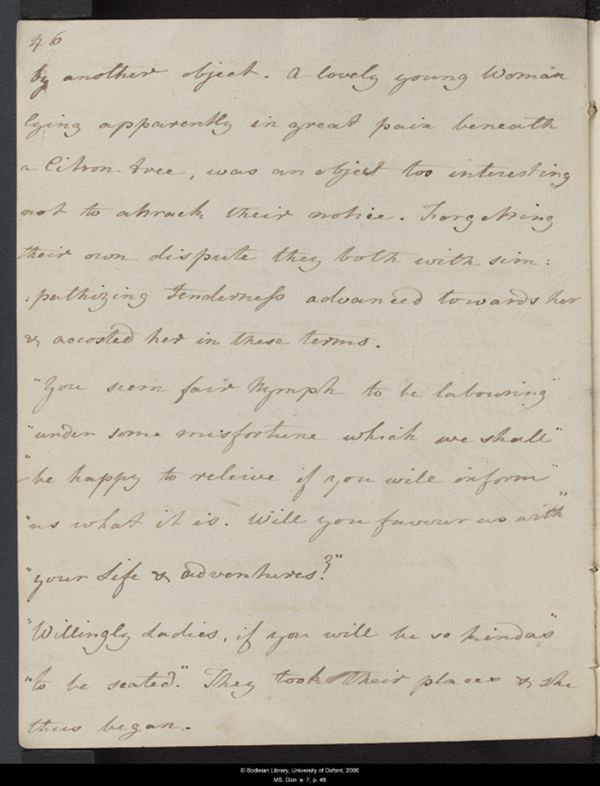 46
by another object. A lovely young Woman
lying apparently in great pain beneath
a Citron-tree, was an object too interesting
not to attract their notice. Forgetting
their own dispute they both with sim:
:pathizing tenderness advanced towards her
& accosted her in these terms.
"You seem fair Nymph to be labouring"
"under some misfortune which we shall"
"be happy to releive if you will inform"
"us what it is. Will you favour us with"
"your Life & adventures?"
"Willingly Ladies, if you will be so kind as"
"to be seated." They took their places & she
thus began.
© Bodleian Library, University of Oxford, 2006
MS. Don. e. 7, p. 46